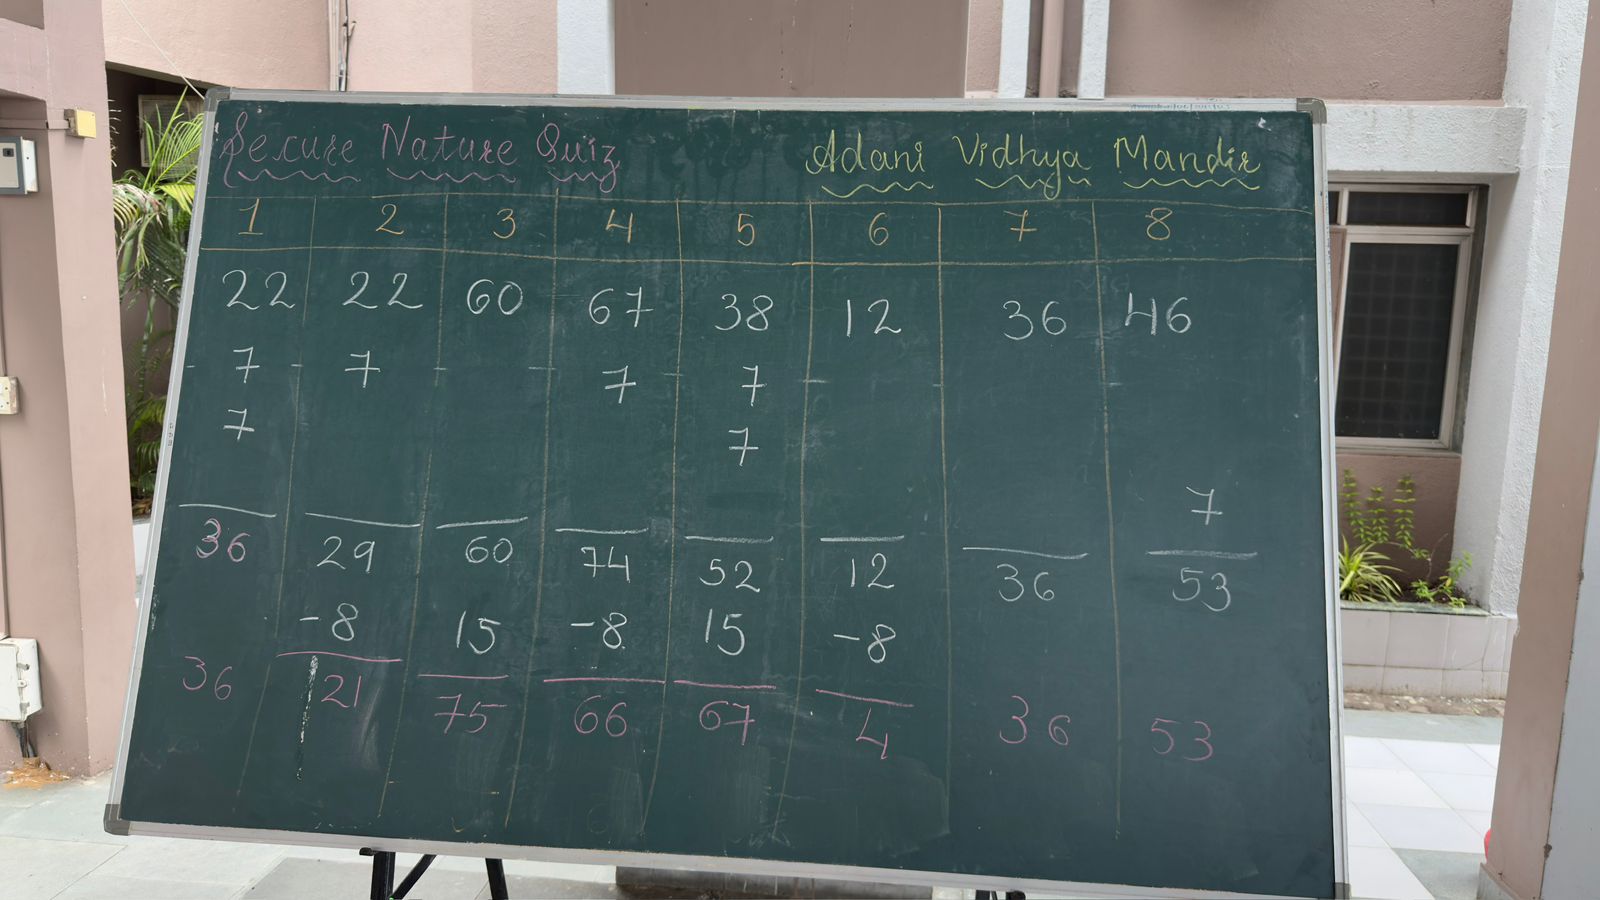 Secure Nature Quiz Adani Vidhya Mandir
1 2 3 4 5 6 7 8
22 22 60 67 38 12 36 46
7 7 7 7
7 7
7
36 29 60 74 52 12 36 53
-8 15 -8 15 -8
36 21 75 66 67 4 36 53